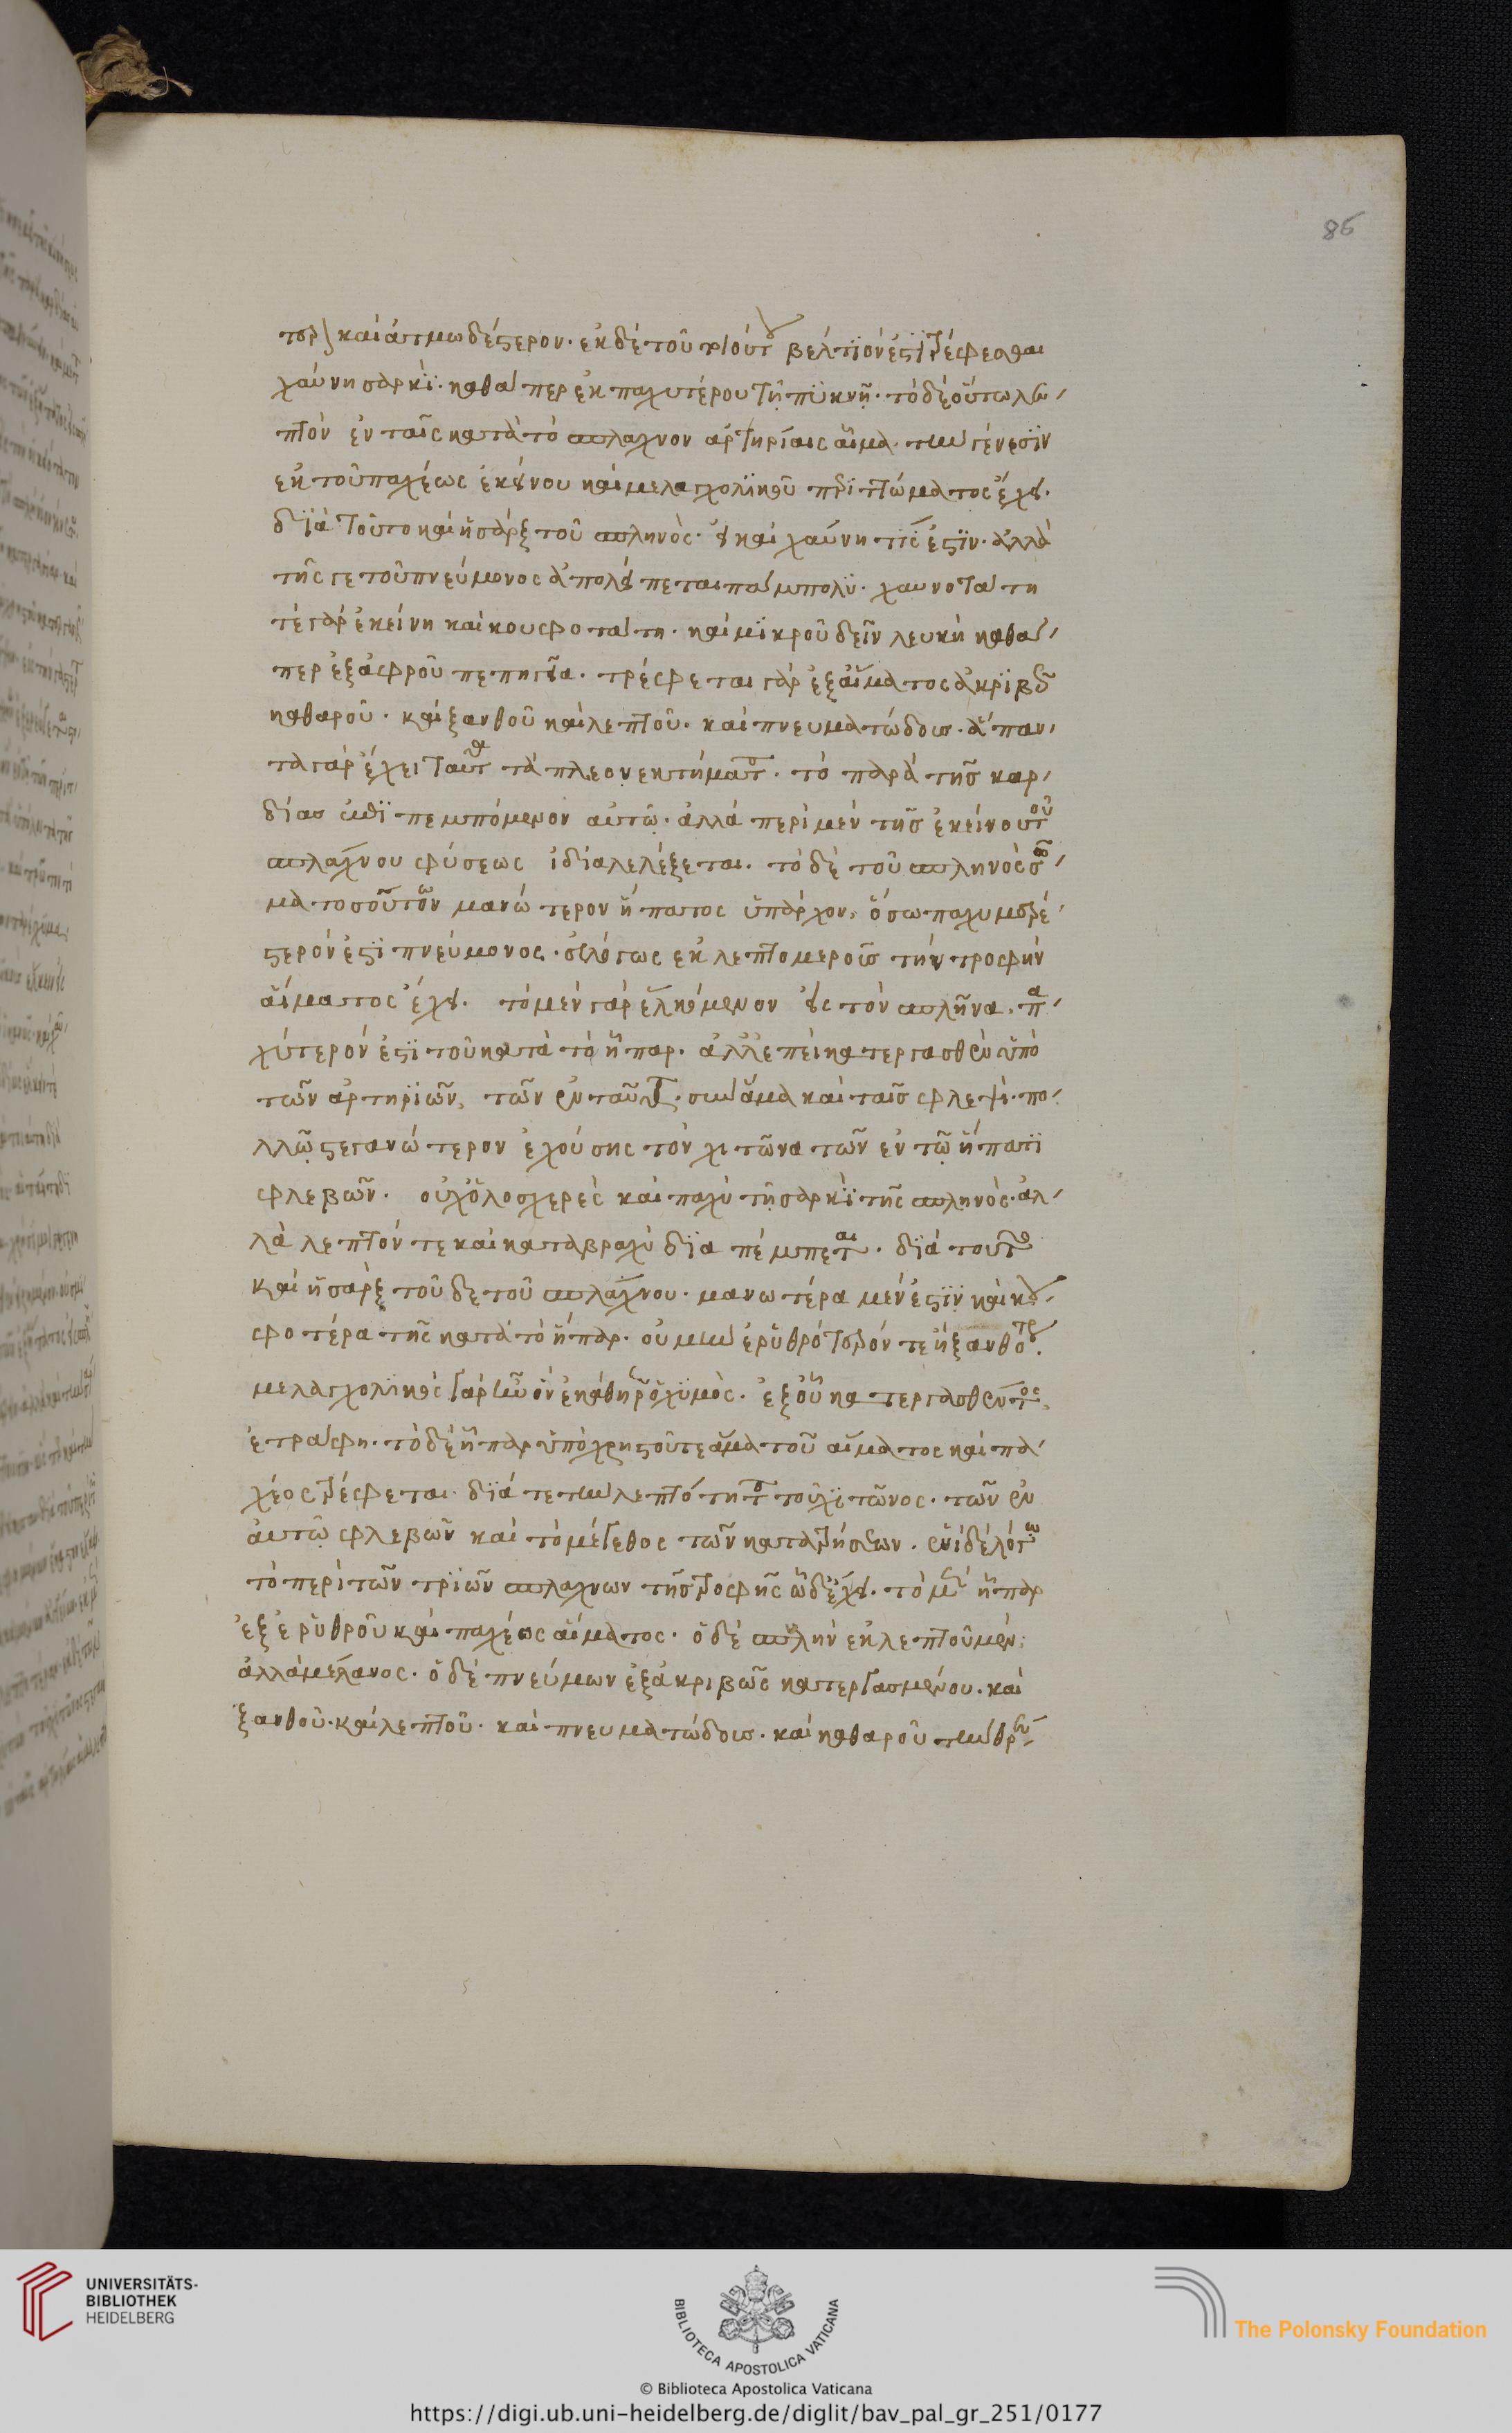 86
τερον καὶ ἀτμωδέστερον· ἐκ δὲ τοῦ τοιούτου βέλτιόν ἐστι τρέφεσθαι
χαύνῃ σαρκὶ· καθάπερ ἐκ παχυτέρου τῇ πυκνῇ· τὸ δὲ οὕτω λε
πτὸν ἐν ταῖς κατὰ τὸ σπλάχνον ἀρτηρίαις αἷμα· τὴν γένεσιν
ἐκ τοῦ παχέως ἐκείνου καὶ μελαγχολικοῦ περιττώματος ἔχει·
διὰ τοῦτο καὶ ἡ σὰρξ τοῦ σπληνὸς· εἰ καὶ χαύνη τίς ἐστιν· ἀλλὰ
τῆς γε τοῦ πνεύμονος ἀπολείπεται πάμπολυ· χαυνοτάτη
τὲ γὰρ ἐκείνη καὶ κουφοτάτη· καὶ μικροῦ δεῖν λευκὴ καθά
περ ἐξ ἀφροῦ πεπηγῖα· τρέφεται γὰρ ἐξ αἵματος ἀκριβῶς
καθαροῦ· καὶ ξανθοῦ καὶ λεπτοῦ· καὶ πνευματώδους· ἅπαν
τα γὰρ ἔχει ταῦτα τὰ πλεονεκτήματα· τὸ παρὰ τῆς καρ
δίας ἐπιπεμπόμενον αὐτῷ· ἀλλὰ περὶ μὲν τῆς ἐκείνου τοῦ
σπλάχνου φύσεως ἰδία λελέξεται· τὸ δὲ τοῦ σπληνὸς σῶ
μα τοσοῦτον μανώτερον ἥπατος ὑπάρχον, ὅσω παχυμερέ
στερόν ἐστι πνεύμονος· εὐλόγως ἐκ λεπτομεροῦς τὴν τροφὴν
αἵματος ἔχει· τὸ μὲν γὰρ ἑλκόμενον εἰς τὸν σπλῆνα· πα
χύτερόν ἐστι τοῦ κατὰ τὸ ἧπαρ· ἀλλ' ἐπεὶ κατεργασθὲν ὑπὸ
τῶν ἀρτηριῶν, τῶν ἐνταῦθα· σὺν ἅμα καὶ ταῖς φλεψὶ· πο
λλῷ στεγανώτερον ἐχούσης τὸν χιτῶνα τῶν ἐν τῷ ἥπατι
φλεβῶν· οὐχ ὁλοσχερὲς καὶ παχὺ τῇ σαρκὶ τῆς σπληνὸς· ἀλ
λὰ λεπτόν τε καὶ καταβραχὺ διαπέμπεται· διὰ τοῦτο
καὶ ἡ σὰρξ τοῦδε τοῦ σπλάχνου· μανωτέρα μὲν ἐστὶν καὶ κου
φοτέρα τῆς κατὰ τὸ ἧπαρ· οὐ μὴν ἐρυθρότερόν τε ἢ ξανθότερον·
μελαγχολικὸς γὰρ ἦν ὁ ἐκάθηρεν ὁ χυμὸς· ἐξ οὗ κατεργασθέντος
ἐτράφη· τὸ δὲ ἧπαρ ὑπὸ χρηστοῦ τε ἅμα τοῦ αἵματος καὶ πα
χέος τρέφεται· διὰ τε τὴν λεπτότητα τοῦ χιτῶνος· τῶν ἐν
αὐτῷ φλεβῶν καὶ τὸ μέγεθος τῶν κατατρήσεων· ἑνὶ δὲ λόγω
τὸ περὶ τῶν τριῶν σπλάχνων τῆς τροφῆς ὧδε ἔχει· τὸ μὲν ἧπαρ
ἐξ ἐρυθροῦ καὶ παχέως αἵματος· ὁ δὲ σπλὴν ἐκ λεπτοῦ μὲν·
ἀλλὰ μέλανος· ὁ δὲ πνεύμων ἐξ ἀκριβῶς κατεργασμένου· καὶ
ξανθοῦ· καὶ λεπτοῦ· καὶ πνευματώδους· καὶ καθαροῦ τὴν θρέ
UNIVERSITÄTS-
BIBLIOTHEK
HEIDELBERG
BIBLIOTECA APOSTOLICA VATICANA
The Polonsky Foundation
© Biblioteca Apostolica Vaticana
https://digi.ub.uni-heidelberg.de/diglit/bav_pal_gr_251/0177